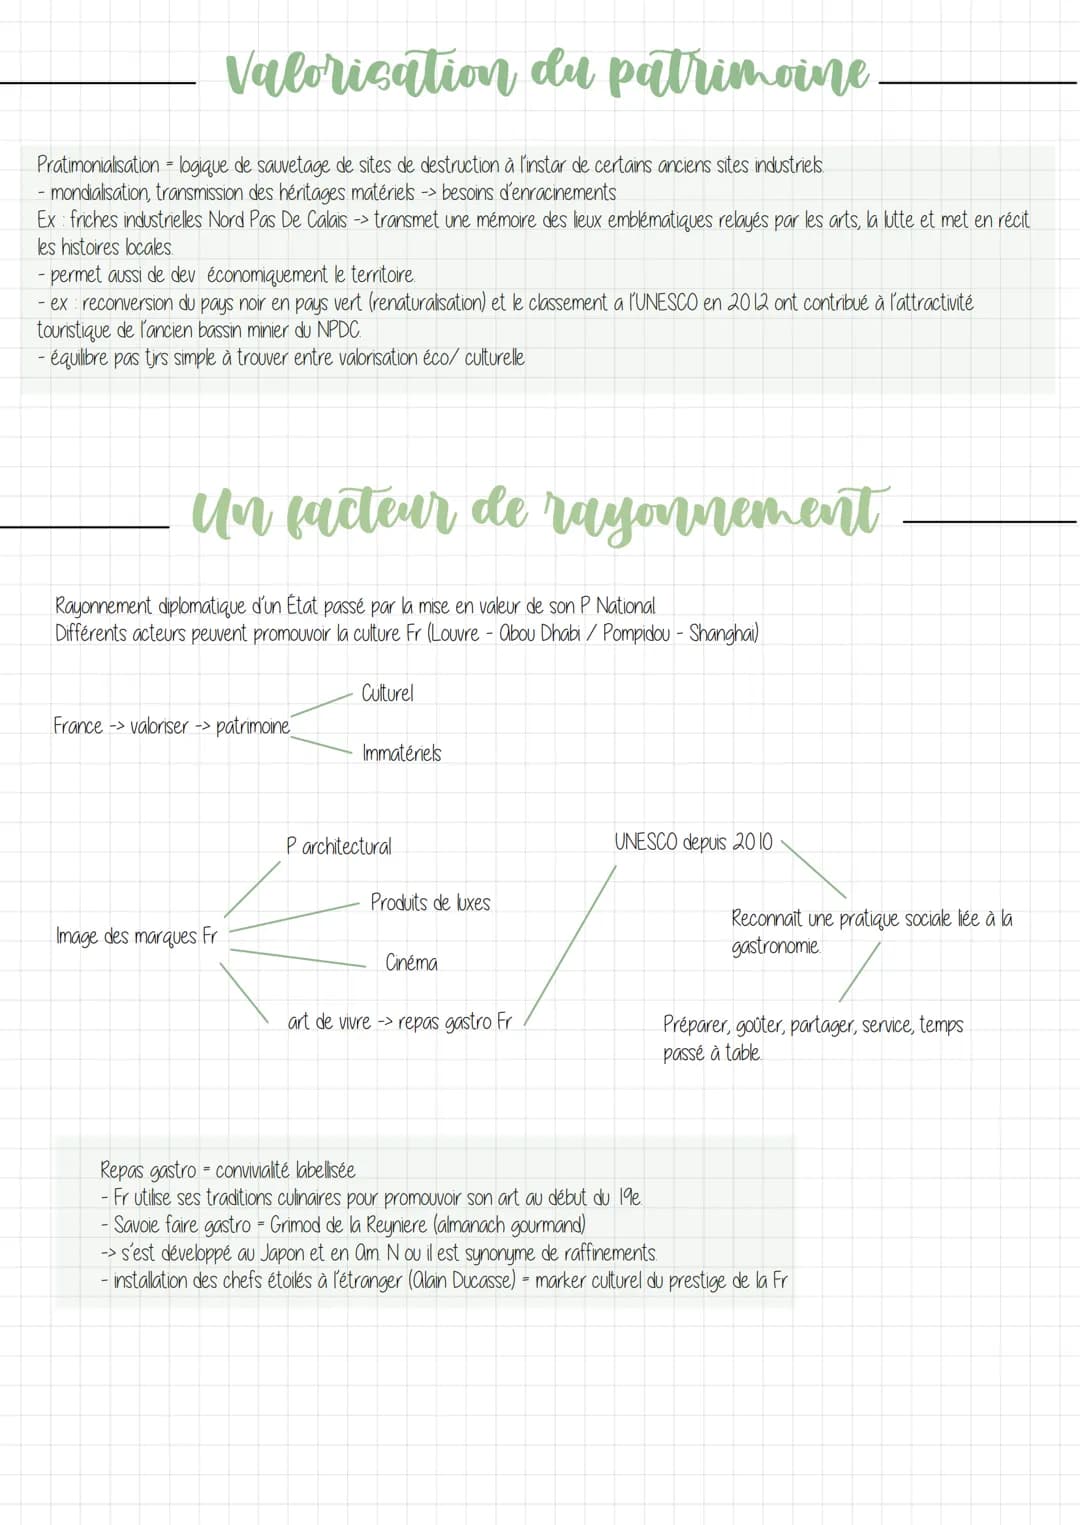 Valorisation du patrimoine
Pratimonialisation = logique de sauvetage de sites de destruction à l'instar de certains anciens sites industriels.
- mondialisation, transmission des héritages matériels -> besoins d'enracinements
Ex : friches industrielles Nord Pas De Calais -> transmet une mémoire des lieux emblématiques relayés par les arts, la lutte et met en récit
les histoires locales.
- permet aussi de dev économiquement le territoire.
- ex : reconversion du pays noir en pays vert (renaturalisation) et le classement a l'UNESCO en 2012 ont contribué à l'attractivité
touristique de l'ancien bassin minier du NPDC.
- équilibre pas tjrs simple à trouver entre valorisation éco/ culturelle
Un facteur de rayonnement
Rayonnement diplomatique d'un État passé par la mise en valeur de son P National
Différents acteurs peuvent promouvoir la culture Fr (Louvre - Abou Dhabi / Pompidou - Shanghai)
Culturel
France -> valoriser -> patrimoine
Immatériels
P architectural
UNESCO depuis 2010
Produits de luxes
Reconnaît une pratique sociale liée à la
gastronomie.
Image des marques Fr
Cinéma
art de vivre -> repas gastro Fr
Préparer, goûter, partager, service, temps
passé à table.
Repas gastro = convivialité labellisée
- Fr utilise ses traditions culinaires pour promouvoir son art au début du 19e.
- Savoie faire gastro = Grimod de la Reyniere (almanach gourmand)
-> s'est développé au Japon et en Am. N ou il est synonyme de raffinements.
- installation des chefs étoilés à l'étranger (Alain Ducasse) = marker culturel du prestige de la Fr